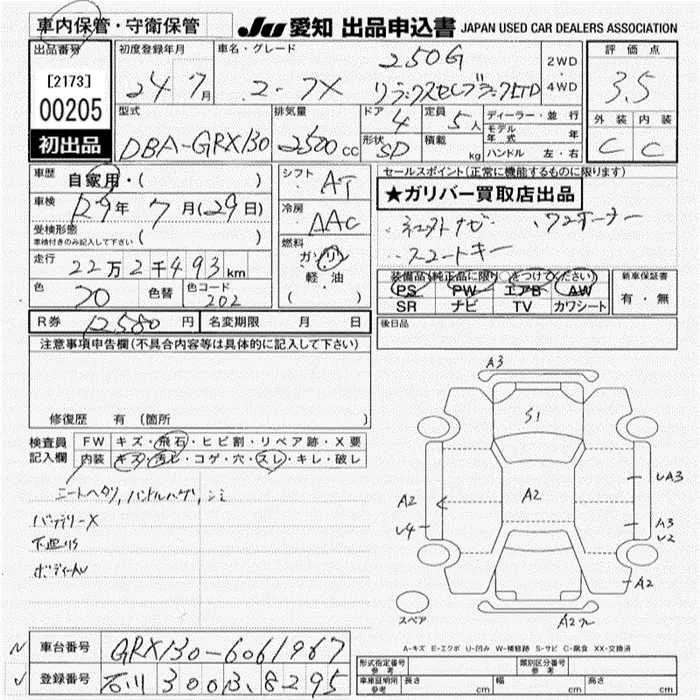 車内保管・守衛保管
JU 愛知 出品申込書 JAPAN USED CAR DEALERS ASSOCIATION
出品番号
[2173]
00205
初出品
初度登録年月
24 7月
車名・グレード
250G
マークX
リラックスセレブラックLTD
2WD
・
4WD
評価点
3.5
外装 内装
C C
型式
DBA-GRX130
排気量
2500cc
ドア
4
形状
SD
定員
5人
積載
kg
ディーラー・並行
モデル年式 年
ハンドル 左・右
車歴
自家用・( )
車検
29年 7月(29日)
受検形態
車検付きのみ記入して下さい ( )
走行
22万2千493km
色
色替
色コード
202
シフト
AT
冷房
AAC
燃料
ガソリン
軽油
( )
セールスポイント(正常に機能するものに限ります)
★ガリバー買取店出品
・純正ナビ ・ワンオーナー
・スマートキー
装備品(純正品に限り○をつけてください)
PS PW エアB AW
SR ナビ TV カワシート
新車保証書
有・無
後日品
R券 12580円
名変期限 月 日
注意事項申告欄(不具合内容等は具体的に記入して下さい)
修復歴 有 (箇所 )
検査員記入欄
FW キズ・飛石・ヒビ割・リペア跡・X要
内装 キズ・汚レ・コゲ・穴・スレ・キレ・破レ
シートヘタリ,ハンドルハゲ,シミ
バッテリーX
下廻りS
ボディーAU
A3
S1
A2
A2
U4
UA3
A3
U2
A2
スペア
A-キズ E-エクボ U-凹み W-補修跡 S-サビ C-腐食 XX-交換済
車台番号 GRX130-6061967
登録番号 石川 300 8295
型式指定番号
参考
類別区分番号
参考
車庫証明用
参考
長さ cm
幅 cm
高さ cm